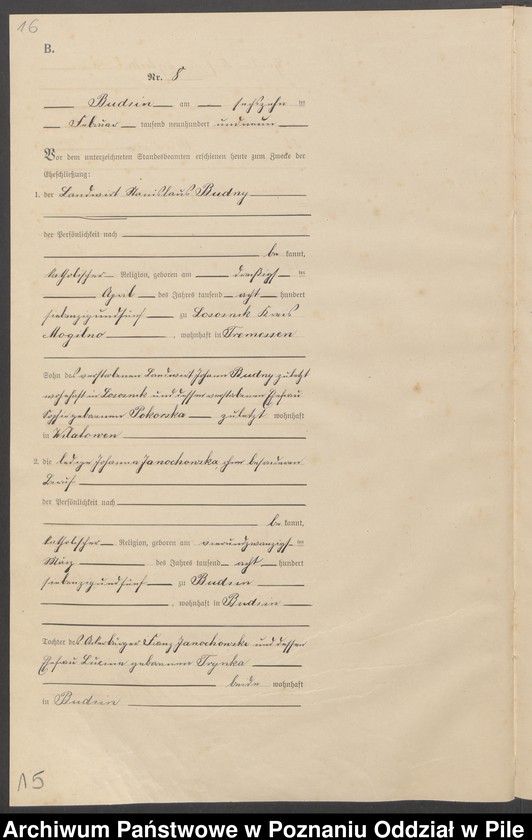 16
B.
Nr. 8
Budsin am sechszehn ten
Februar tausend neunhundert und neun
Vor dem unterzeichneten Standesbeamten erschienen heute zum Zwecke der
Eheschließung:
1. der Landwirt Stanislaus Budny
der Persönlichkeit nach
be kannt,
katholischer Religion, geboren am dreißigsten
April des Jahres tausend acht hundert
siebenzig und fünf zu Lososnik Kreis
Mogilno, wohnhaft in Tremessen
Sohn des verstorbenen Landwirt Johann Budny zuletzt
wohnhaft in Lososnik und dessen verstorbenen Ehefrau
Sophie geborenen Pokorska zuletzt wohnhaft
in Wilatowen
2. die ledige Johanna Janochowska, ohne besonderen
Beruf
der Persönlichkeit nach
be kannt,
katholischer Religion, geboren am vierundzwanzigsten
März des Jahres tausend acht hundert
siebenzig und fünf zu Budsin
, wohnhaft in Budsin
Tochter des Ackerbürger Franz Janochowski und dessen
Ehefrau Lucina geborenen Trynka
beide wohnhaft
in Budsin
15
Archiwum Państwowe w Poznaniu Oddział w Pile